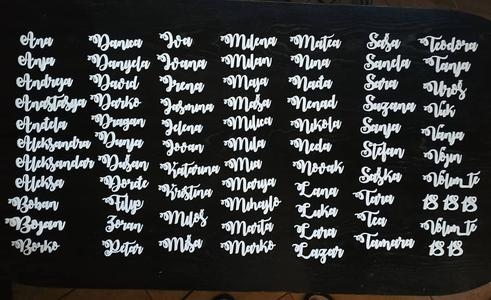 Ana
Anja
Andreja
Anastasija
Anđela
Aleksandra
Aleksandar
Aleksa
Boban
Bojan
Borko
Danica
Danijela
David
Darko
Dragan
Dunja
Dušan
Đorđe
Filip
Zoran
Petar
Iva
Ivana
Irena
Jasmina
Jelena
Jovan
Katarina
Kristina
Miloš
Miša
Milena
Milan
Maja
Maša
Milica
Mila
Mia
Marija
Mihajlo
Marita
Marko
Matea
Nina
Nađa
Nenad
Nikola
Neda
Novak
Lana
Luka
Lara
Lazar
Saša
Sanela
Sara
Suzana
Sanja
Stefan
Saška
Tara
Tea
Tamara
Teodora
Tanja
Uroš
Vuk
Vanja
Vojin
Volim te
18 18 18
Volim te
18 18